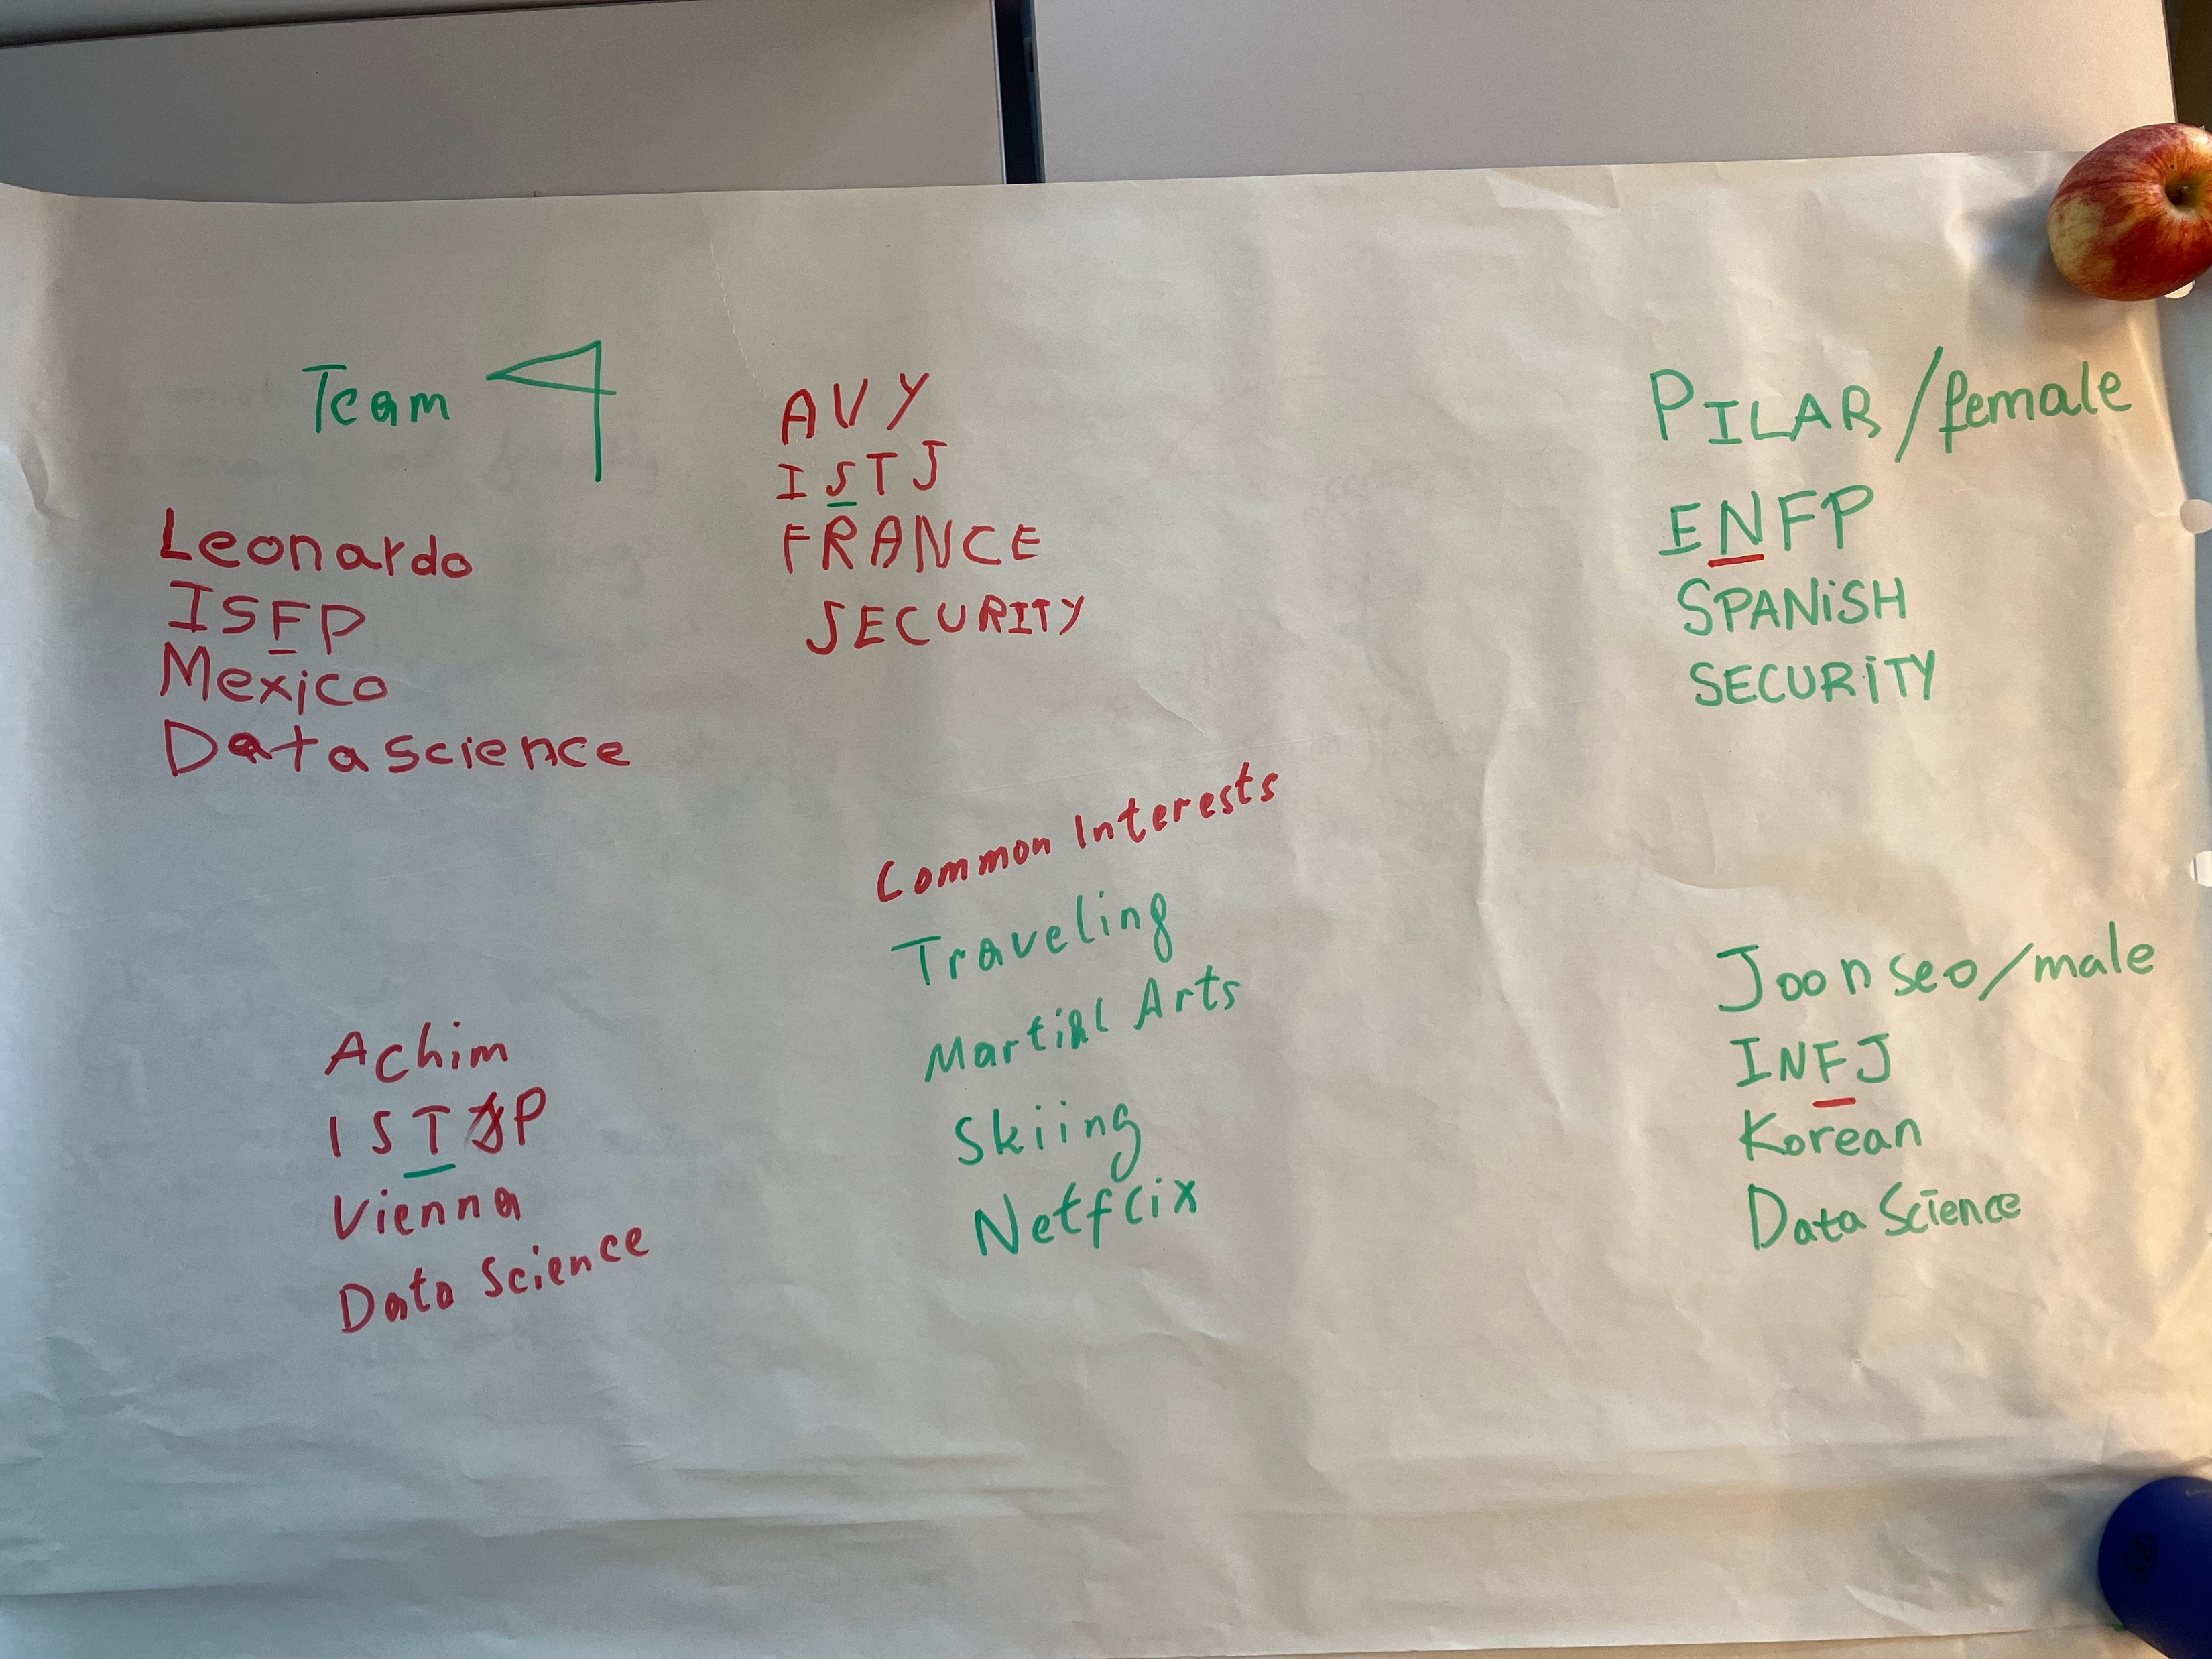 Team 4
Leonardo
ISFP
Mexico
Data science
AVY
ISTJ
FRANCE
SECURITY
PILAR/female
ENFP
SPANiSH
SECURiTY
Common Interests
Traveling
Martial Arts
Skiing
Netflix
Achim
ISTP
Vienna
Data Science
Joonseo/male
INFJ
Korean
Data Science